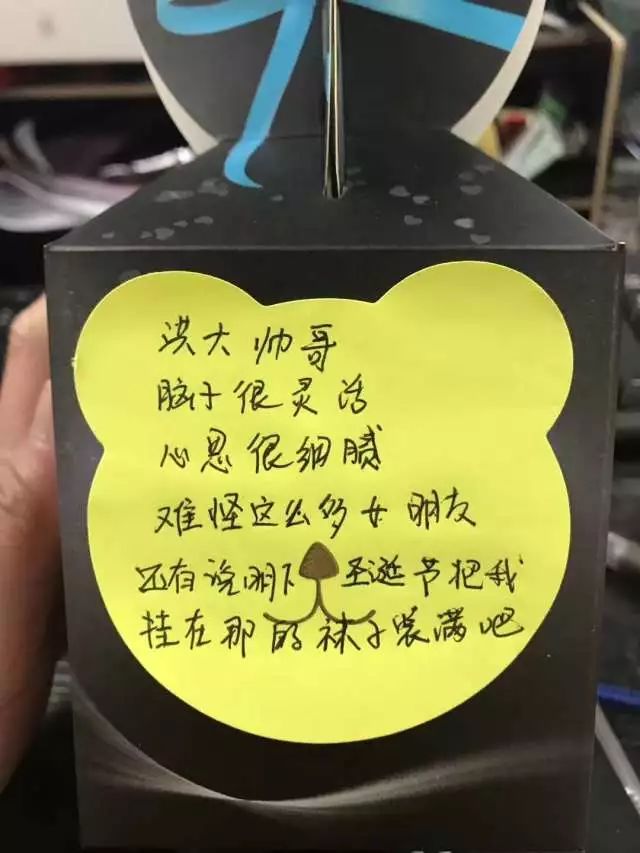 洪大帅哥
脑子很灵活
心思很细腻
难怪这么多女朋友
还有说明下 圣诞节把我
挂在那的袜子装满吧